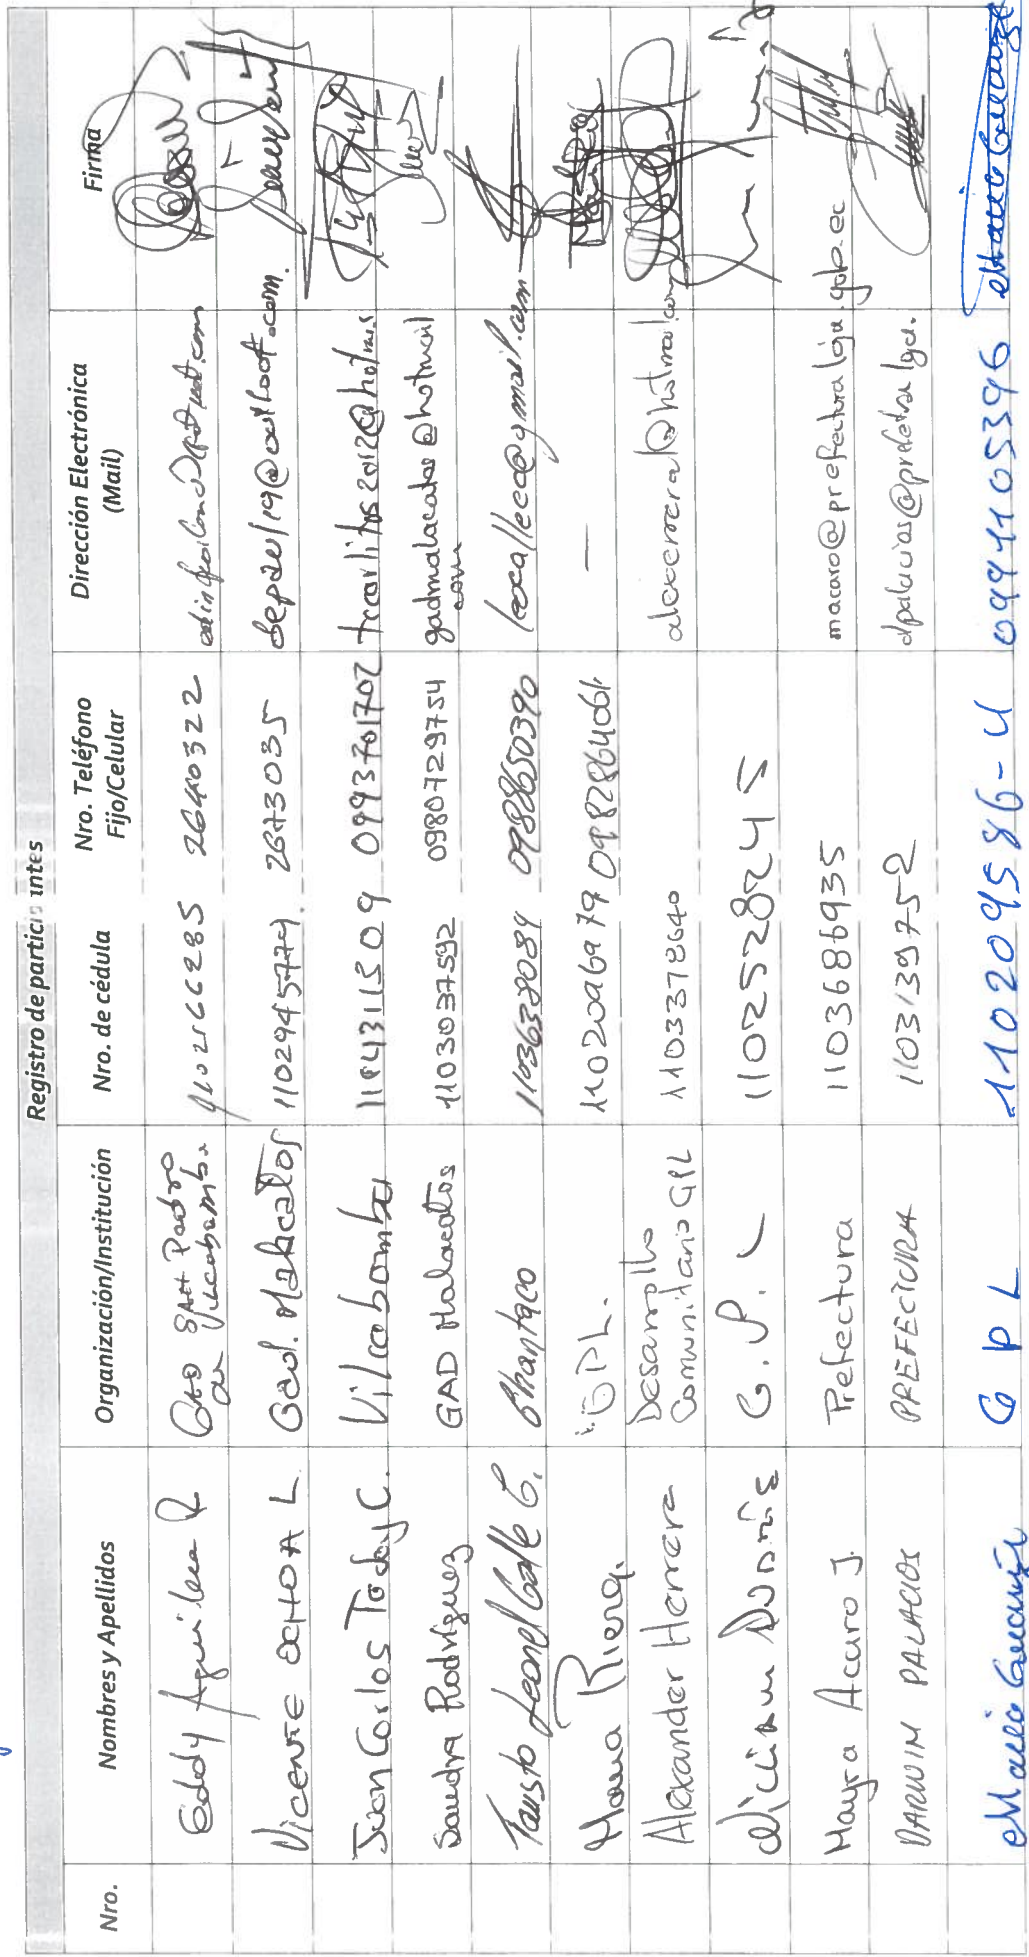 Registro de participantes
Nro. Nombres y Apellidos Organización/Institución Nro. de cédula Nro. Teléfono Fijo/Celular Dirección Electrónica (Mail) Firma
Eddy Aguilera R San Pedro de Vilcabamba 2640322
Vicente Ochoa L. Gad. Malacatos 1102945774 2673035
Juan Carlos Toledo C. Vilcabamba 0993701702 tcarlitos2012@hotmas
Sandra Rodríguez GAD Malacatos 1103037592 0980729754 gadmalacatos@hotmail
com
Fausto Leonel Calle C. Chantaco 1103638084 0988650390 lecallec@gmail.com
María Riera. G.P.L. 1102096979 0982864066 —
Alexander Herrera Desarrollo Comunitario GPL 1103378640
G. P. L 1102528245
Mayra Acaro J. Prefectura 1103686935 macaro@prefecturaloja.gob.ec
DARWIN PALACIOS PREFECTURA 1103139752 dpalacios@prefectura loja.
G P L 110209586-4 0994105396